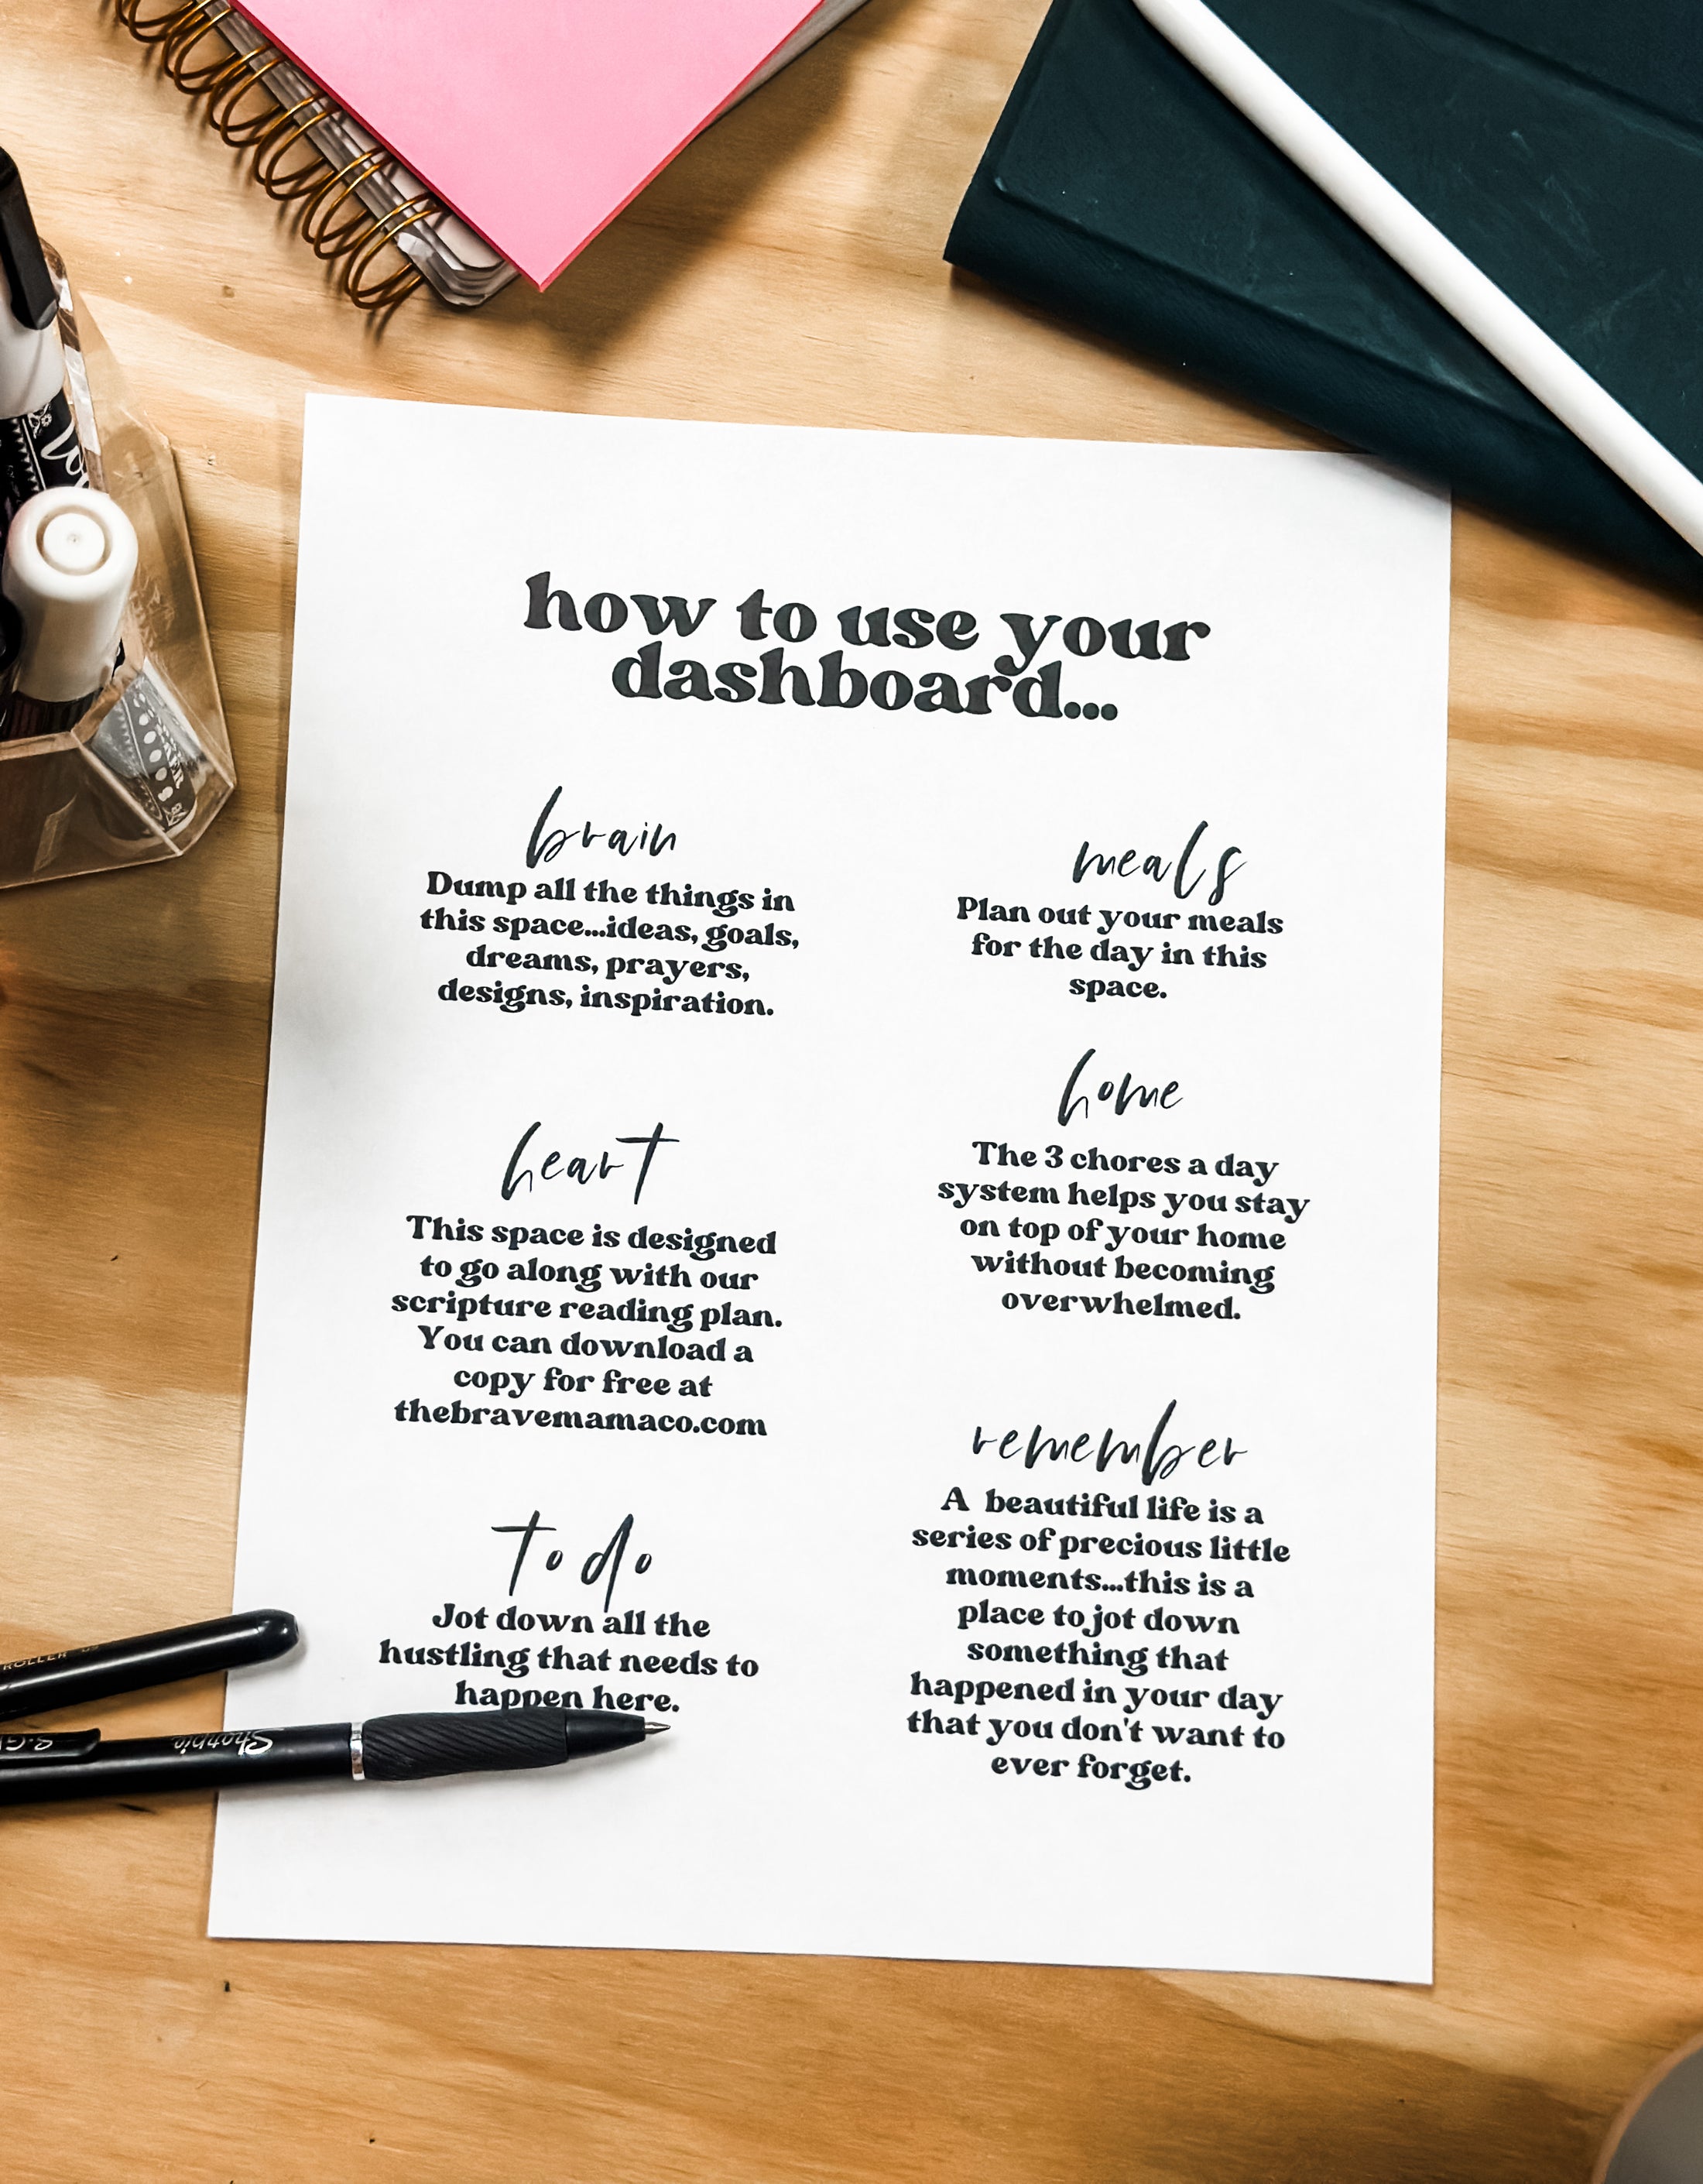 how to use your
dashboard...
brain
Dump all the things in
this space...ideas, goals,
dreams, prayers,
designs, inspiration.
heart
This space is designed
to go along with our
scripture reading plan.
You can download a
copy for free at
thebravemamaco.com
to do
Jot down all the
hustling that needs to
happen here.
meals
Plan out your meals
for the day in this
space.
home
The 3 chores a day
system helps you stay
on top of your home
without becoming
overwhelmed.
remember
A  beautiful life is a
series of precious little
moments...this is a
place to jot down
something that
happened in your day
that you don't want to
ever forget.
Sharpie